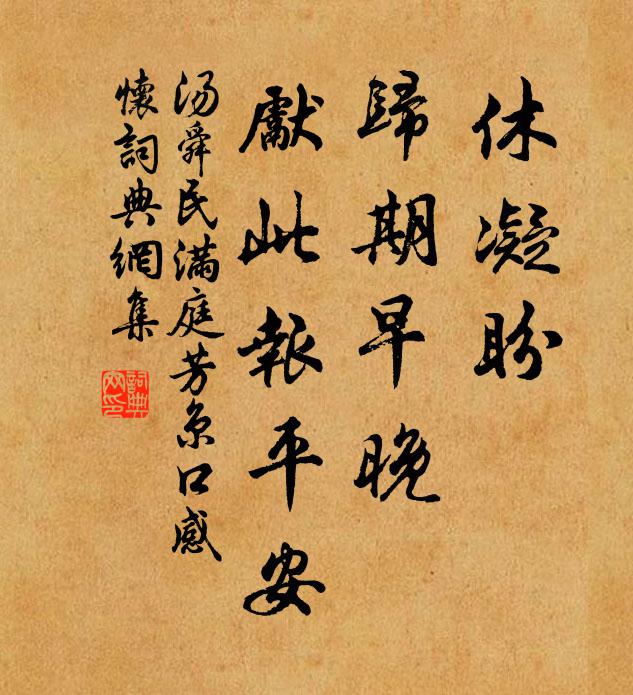 休凝盼
歸期早晚
獻此報平安
汤舜民满庭芳京口感
懷詞典網集
詞典網印